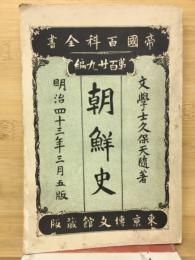 帝國百科全書
第百廿九編
文學士久保天隨著
朝鮮史
明治四十三年三月五版
東京博文館藏版